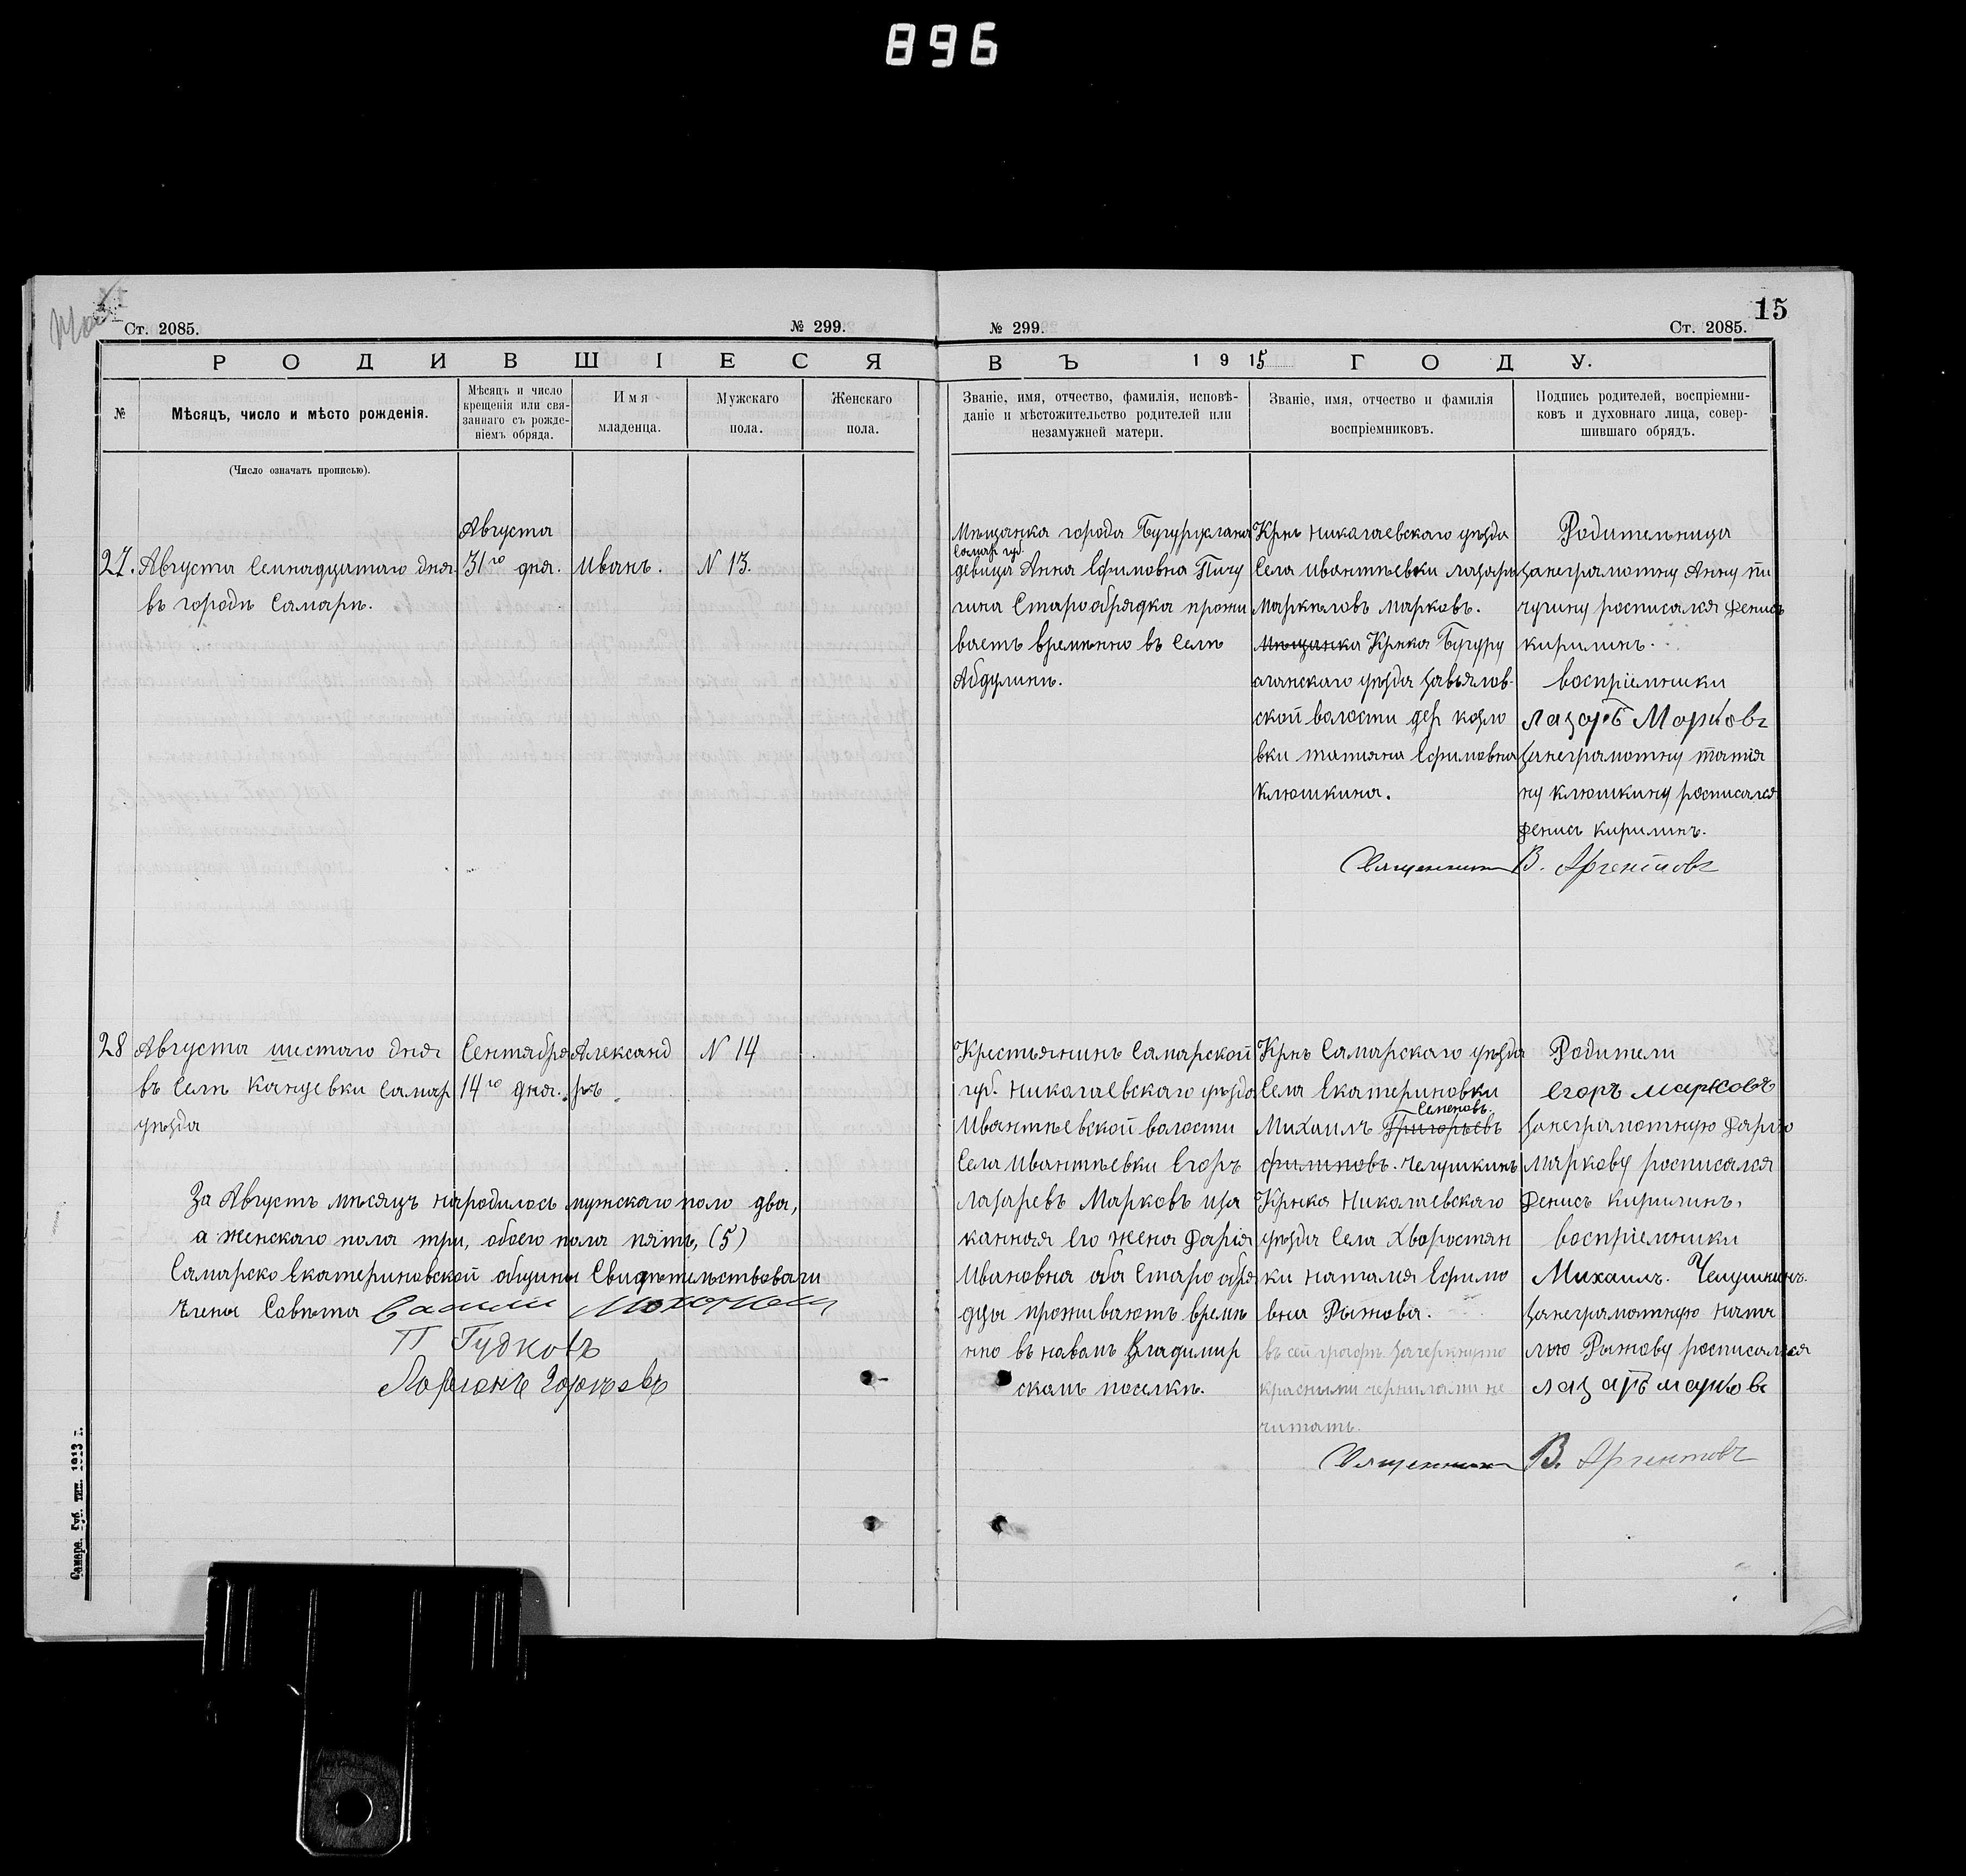 896
15
Ст. 2085.
№ 299.
№ 299.
Ст. 2085.
РОДИВШІЕСЯ
ВЪ 1915 ГОДУ.
№
Мѣсяцъ, число и мѣсто рожденія.
Мѣсяцъ и число
крещенія или свя-
заннаго съ рожде-
ніемъ обряда.
Имя
младенца.
Мужскаго
пола.
Женскаго
пола.
Званіе, имя, отчество, фамилія, исповѣ-
даніе и мѣстожительство родителей или
незамужней матери.
Званіе, имя, отчество и фамилія
воспріемниковъ.
Подпись родителей, воспріемни-
ковъ и духовнаго лица, совер-
шившаго обрядъ.
(Число означать прописью).
27. Августа Семнадцатаго дня
въ городѣ Самарѣ.
Августа
31го дня.
Иванъ.
N 13.
Мѣщанка города Бугуруслана
Самар губ.
девица Анна Ефимовна Пичу
гина Старообрядка прожи
ваетъ временно въ селѣ
Абдулинѣ.
Крнъ Николаевскаго уѣзда
Села Ивантѣевки Лазарь
Маркѣловъ Марковъ.
Мѣщанка Крнка Бугуру
сланскаго уѣзда Завьялов-
ской волости дер Козло
вки Татияна Ефимовна
Клюшкина.
Родительница
Занеграмотну Анну Пи
чугину росписался Денисъ
Кирилинъ.
Воспріемники
Лазарь Марковъ
Занеграмотну Татія
ну Клюшкину росписался
Денисъ Кирилинъ.
Священникъ В. Аргентовъ
28 Августа шестаго дня
въ Селѣ Канцевки Самар
уѣзда
Сентября
14го дня.
Александ
ръ
N 14
Крестьянинъ Самарской
губ. Николаевскаго уѣзда
Ивантѣевской волости
Села Ивантѣевки Егоръ
Лазаревъ Марковъ иза
канная его жена Дарія
Ивановна оба Старообря
дцы проживаютъ времѣ
нно въ новомъ Владимир
скомъ поселкѣ.
Крнъ Самарскаго уѣзда
Села Екатериновки
Семеновъ.
Михаилъ Григорьевъ
филиповъ. Челушкинъ
Крнка Николаевскаго
уѣзда Села Хворостян
ки Наталія Ефимо
вна Рыжова.
въ сей графѣ зачеркнуто
красными чернилами не
читать.
Родители
Егоръ Марковъ
Занеграмотную Дарію
Маркову росписался
Денисъ Кирилинъ.
Воспріемники
Михаилъ. Челушкинъ.
Занеграмотную Ната
лью Рыжову росписался
Лазарь Марковъ
Священникъ В. Аргентовъ
За Августъ мѣсяцъ народилось мужскаго поло два,
а женскаго пола три, обоего пола пять, (5)
Самарско Екатериновской общины Свидѣтельствовали
Члены Совѣта
П Гудковъ
Самара. Губ. тип. 1913 г.